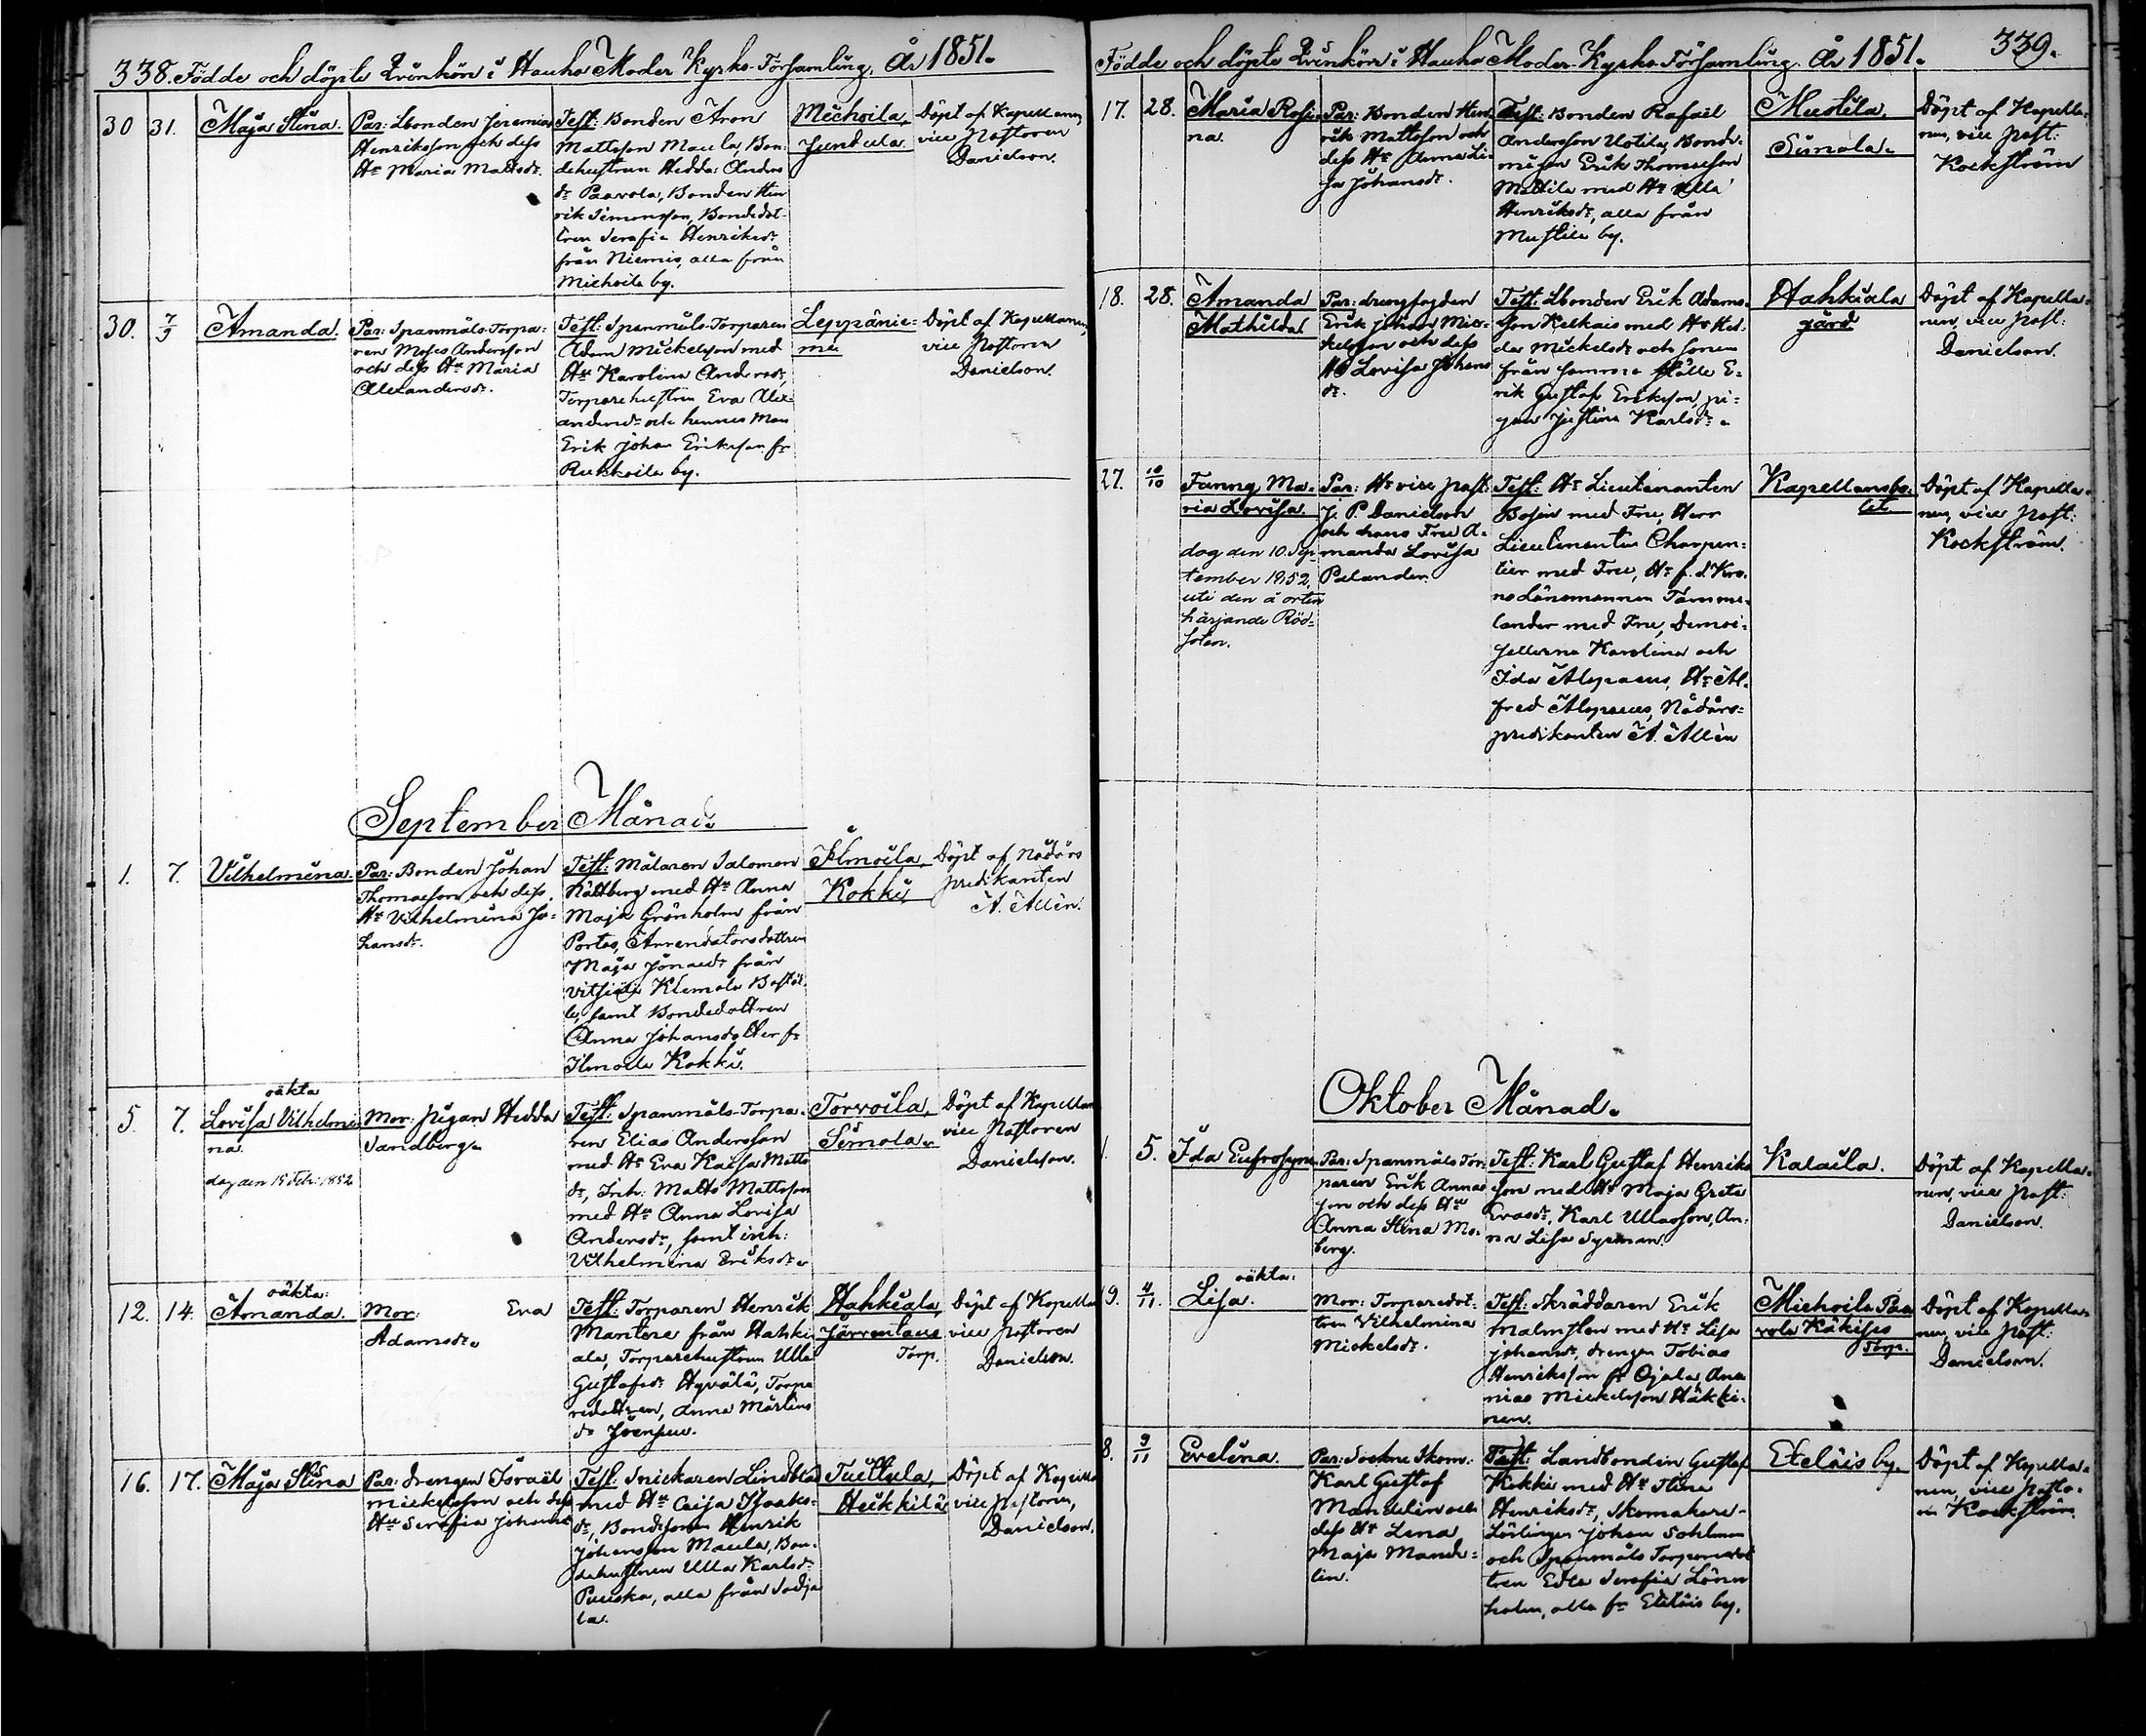 338. Födde och döpte Qvinkön i Hauho Moder Kyrko-Församling. År 1851.
30 31. Maja Stina.
Par: Lbonden Jeremias
Henriksson och dess
Hu Maria Mattsdr.
Test: Bonden Aron
Mattsson Maula, Bon-
dehustrun Hedda Anders
dr Paavola, Bonden Hen
rik Simonsson, Bondedot-
tren Serafia Henriksdr
från Niemis, alla från
Miehoila by.
Miehoila,
Juntula.
Döpt af Kapellanen,
vice Pastoren
Danielson.
30. 7/9 Amanda.
Par: Spanmåls-Torpa-
ren Moses Andersson
och dess Hu Maria
Alexandersdr.
Test: Spanmåls-Torparen
Adam Mickelsson med
Hu Karolina Andersdr,
Torparehustrun Eva Alex-
andersdr och hennes Man
Erik Johan Eriksson fr
Rukkoila by.
Leppänie-
mi
Döpt af Kapellanen,
vice Pastoren
Danielson.
September Månad.
1. 7. Vilhelmina.
Par: Bonden Johan
Thomasson och dess
Hu Vilhelmina Jo-
hansdr.
Test: Målaren Salomon
Rättberg med Hu Anna
Maja Grönholm från
Portas, Arrendatorsdottren
Maja Jonaedr från
Vitsiälä Klemola Bostäl-
le, samt Bondedottren
Anna Johansdotter fr
Ilmoila Kokki.
Ilmoila,
Kokki
Döpt af Nådårs
predikanten
A. Allén.
5. 7. oäkta
Lovisa Vilhelmi-
na.
dog den 15 Feb: 1852
Mor: Pigan Hedda
Sandberg.
Test: Spanmåls-Torpa-
ren Elias Andersson
med Hu Eva Kaisa Matts
dr, Inh: Matts Mattsson
med Hu Anna Lovisa
Andersdr, samt inh:
Vilhelmina Eriksdr.
Torvoila,
Simola.
Döpt af Kapellan
vice Pastoren
Danielson.
12. 14. oäkta:
Amanda.
Mor: Eva
Adamsdr.
Test: Torparen Henrik
Mantere från Hahki
ala, Torparehustrun Ulla
Gustafsdr Hyvälä, Torpa
redottren, Anna Mårtens
dr
Hahkiala,
Järventaus
Torp.
Döpt af Kapella
vice Pastoren
Danielson.
16. 17. Maja Stina
Par: drengen Israel
Mickelsson och dess
Hu Serafia Johansdr
Test: Snickaren Lindblad
med Hu Caisa Isaaks-
dr, Bondesonen Henrik
Johansson Maula, Bon-
dehustrun Ulla Karlsdr
Puuska, alla från Sodja
la.
Tuittula,
Heikkilä
Döpt af Kapella
vice Pastoren,
Danielson.
Födde och döpte Qvinkön i Hauho Moder-Kyrko-Församling. År 1851. 339.
17. 28. Maria Rosi-
na.
Par: Bonden Hen-
rik Mattsson och
dess Hu Anna Li-
sa Johansdr.
Test: Bonden Rafael
Andersson Uotila, Bonde-
mågen Erik Thomasson
Mattila med Hu Ulla
Henriksdr, alla från
Mustila by.
Mustila,
Simola.
Döpt af Kapella-
nen, vice Past:
Kockström
18. 28. Amanda
Mathilda
Par: drengfogden
Erik Johan Mic-
kelsson och dess
Hu Lovisa Johans
dr.
Test: Lbonden Erik Adams-
son Kelkais med Hu Hed-
da Mickelsdr och sonen
från samma ställe E-
rik Gustaf Eriksson, pi-
gan Justina Karlsdr.
Hahkiala
gård
Döpt af Kapella-
nen, vice Past:
Danielson.
27. 10/10 Fanny Ma-
ria Lovisa.
dog den 10. Sep-
tember 1852,
uti den å orten
härjande Röd-
soten.
Par: Hr vice Past:
J. P. Danielson
och hans Fru A-
manda Lovisa
Palander.
Test: Hr Lieutenanten
Bosin med Fru, Herr
Lieutenanten Charpen-
tier med Fru, Hr f. d. Kro-
nolänsmannen Tamme-
lander med Fru, Demoi-
sellerna Karolina och
Ida Alopaeus, Hr Al-
fred Alopaeus, Nådårs-
predikanten A. Allén
Kapellansbo-
let
Döpt af Kapella-
nen, vice Past:
Kockström.
Oktober Månad.
1. 5. Ida Eufrosyne
Par: Spanmåls Tor-
paren Erik Anna
son och dess Hu
Anna Stina Mo-
berg.
Test: Karl Gustaf Henriks
son med Hu Maja Greta
Evasdr, Karl Ullasson, An-
na Lisa Syrman.
Kalaila.
Döpt af Kapella-
nen, vice Past:
Danielson.
9. 4/11. oäkta:
Lisa.
Mor: Torparedot-
tren Vilhelmina
Mickelsdr.
Test: Skräddaren Erik
Malmsten med Hu Lisa
Johansdr, drengen Tobias
Henriksson fr Ojala, Ana
nias Mickelsson Häkki-
nen.
Miehoila Paa
vola Käkises
Torp.
Döpt af Kapella-
nen, vice Past:
Danielson.
8. 9/11 Evelina.
Par: Sockne Skom:
Karl Gustaf
Mandelin och
dess Hu Lena
Maja Mande-
lin.
Test: Landbonden Gustaf
Kokki med Hu Stina
Henriksdr, Skomakare-
Lärlingen Johan Sohlman
och Spanmåls Torparedot
tren Edla Serafia Lönn
holm, alla fr Eteläis by.
Eteläis by.
Döpt af Kapella-
nen, vice Pasto-
rn Kockström.